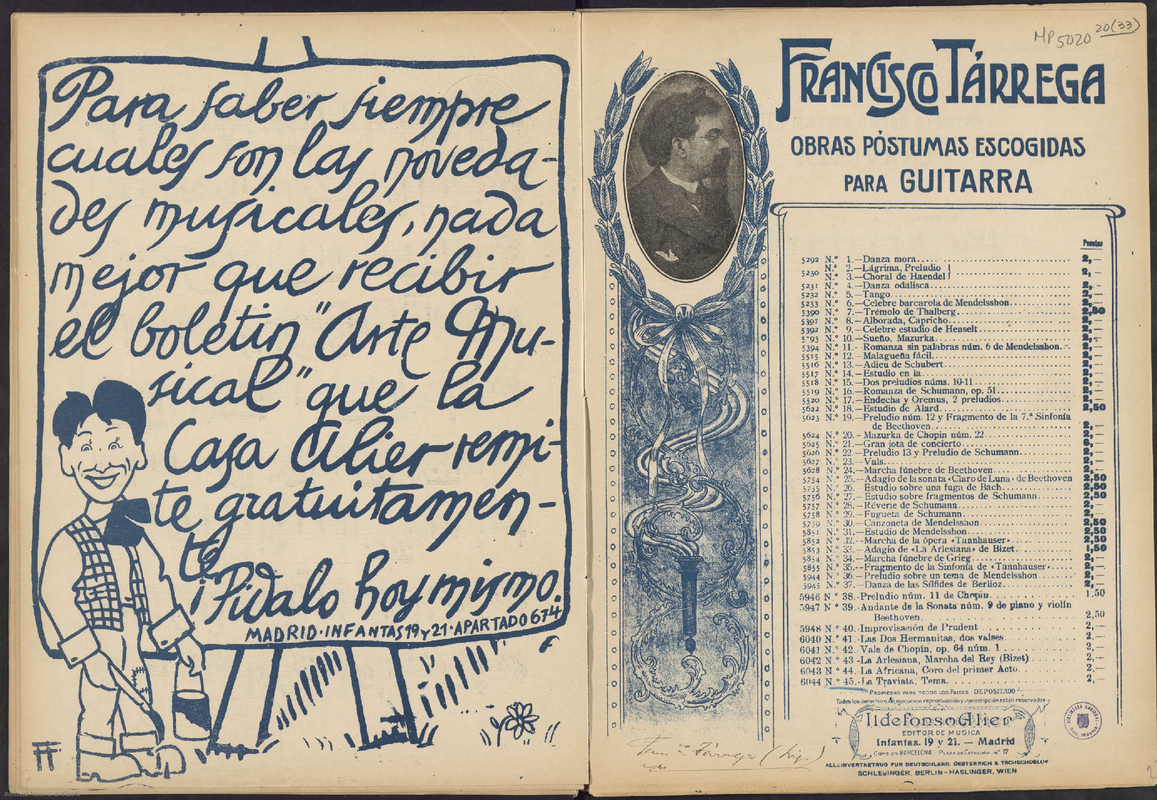 Para saber siempre
cuales son las noveda-
des musicales, nada
mejor que recibir
el boletin "Arte Mu-
sical" que la
Casa Alier remi-
te gratuitamen-
te.
¡Pidalo hoy mismo.
MADRID·INFANTAS 19 y 21·APARTADO 674
MP 5020 20(33)
FRANCISCO TÁRREGA
OBRAS PÓSTUMAS ESCOGIDAS
PARA GUITARRA
Pesetas
5292 N.º 1.—Danza mora 2,—
5230 N.º 2.—Lágrima, Preludio
N.º 3.—Choral de Haendel 2,—
5231 N.º 4.—Danza odalisca 2,—
5232 N.º 5.—Tango 2,—
5233 N.º 6.—Celebre barcarola de Mendelsshon 2,—
5390 N.º 7.—Trémolo de Thalberg 2,50
5391 N.º 8.—Alborada, Capricho 2,—
5392 N.º 9.—Celebre estudio de Henselt 2,—
5393 N.º 10.—Sueño, Mazurka 2,—
5394 N.º 11.—Romanza sin palabras núm. 6 de Mendelsshon 2,—
5515 N.º 12.—Malagueña fácil 2,—
5516 N.º 13.—Adieu de Schubert 2,—
5517 N.º 14.—Estudio en la 2,—
5518 N.º 15.—Dos preludios núms. 10-11 2,—
5519 N.º 16.—Romanza de Schumann, op. 51 2,—
5520 N.º 17.—Endecha y Oremus, 2 preludios 2,—
5622 N.º 18.—Estudio de Alard 2,50
5623 N.º 19.—Preludio núm. 12 y Fragmento de la 7.ª Sinfonía
de Beethoven 2,—
5624 N.º 20.—Mazurka de Chopin núm. 22 2,—
5625 N.º 21.—Gran jota de concierto
5626 N.º 22.—Preludio 13 y Preludio de Schumann 2,—
5627 N.º 23.—Vals 2,—
5628 N.º 24.—Marcha fúnebre de Beethoven 2,—
5754 N.º 25.—Adagio de la sonata «Claro de Luna» de Beethoven 2,50
5755 N.º 26.—Estudio sobre una fuga de Bach 2,50
5756 N.º 27.—Estudio sobre fragmentos de Schumann 2,50
5757 N.º 28.—Réverie de Schumann 2,—
5758 N.º 29.—Fugueta de Schumann 2,—
5759 N.º 30.—Canzoneta de Mendelsshon 2,50
5851 N.º 31.—Estudio de Mendelsshon 2,50
5852 N.º 32.—Marcha de la ópera «Tannhauser» 2,50
5853 N.º 33.—Adagio de «La Arlesiana» de Bizet 1,50
5854 N.º 34.—Marcha fúnebre de Grieg 2,—
5855 N.º 35.—Fragmento de la Sinfonía de «Tannhauser» 2,—
5944 N.º 36.—Preludio sobre un tema de Mendelsshon 2,—
5945 N.º 37.—Danza de las Sílfides de Berlioz 2,—
5946 N.º 38.—Preludio núm. 11 de Chopin 1.50
5947 N.º 39.—Andante de la Sonata núm. 9 de piano y violín
Beethoven 2,50
5948 N.º 40.—Improvisación de Prudent 2,—
6040 N.º 41.—Las Dos Hermanitas, dos valses 2,—
6041 N.º 42.—Vals de Chopín, op. 64 núm. 1 2,—
6042 N.º 43.—La Arlesiana, Marcha del Rey (Bizet) 2,—
6043 N.º 44.—La Africana, Coro del primer Acto 2,—
6044 N.º 45.—La Traviata, Tema 2,—
PROPIEDAD PARA TODOS LOS PAÍSES DEPOSITADO
Todos los derechos de ejecucion reproducción y transcripción están reservados
Ildefonso Alier
EDITOR DE MUSICA
Infantas, 19 y 21. — Madrid
ALLEINVERTRETUG FUR DEUTSCHLAND, OESTERRICH & TSCHECHOSLOV
SCHLESINGER, BERLIN - HASLINGER, WIEN